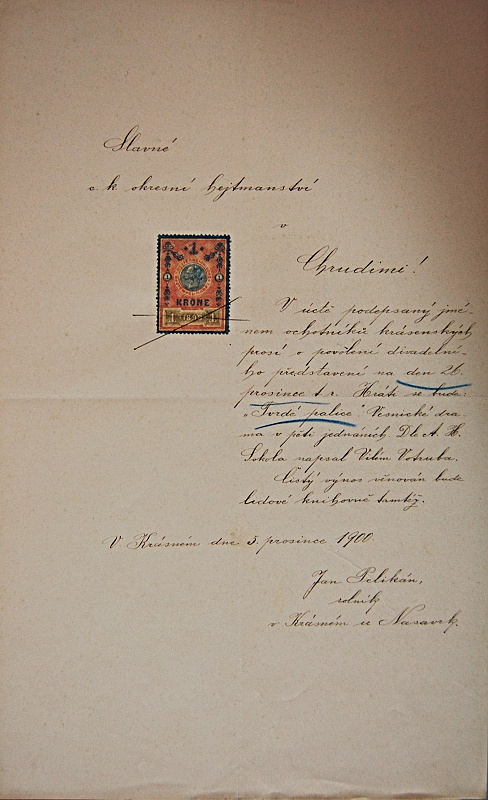 Slavné
c. k. okresní hejtmanství
v
Chrudimi!
1
KRONE
1 1898 1
V úctě podepsaný jmé-
nem ochotníků krásenských
prosí o povolení divadelní-
ho představení na den 26.
prosince t. r. Hráti se bude:
"Tvrdé palice" Vesnické dra-
ma v pěti jednáních. Dle A. H.
Sokola napsal Vilém Votruba.
Čistý výnos věnován bude
lidové knihovně tamtéž.
V Krásném dne 5. prosince 1900.
Jan Pelikán,
rolník
v Krásném u Nasavrk.